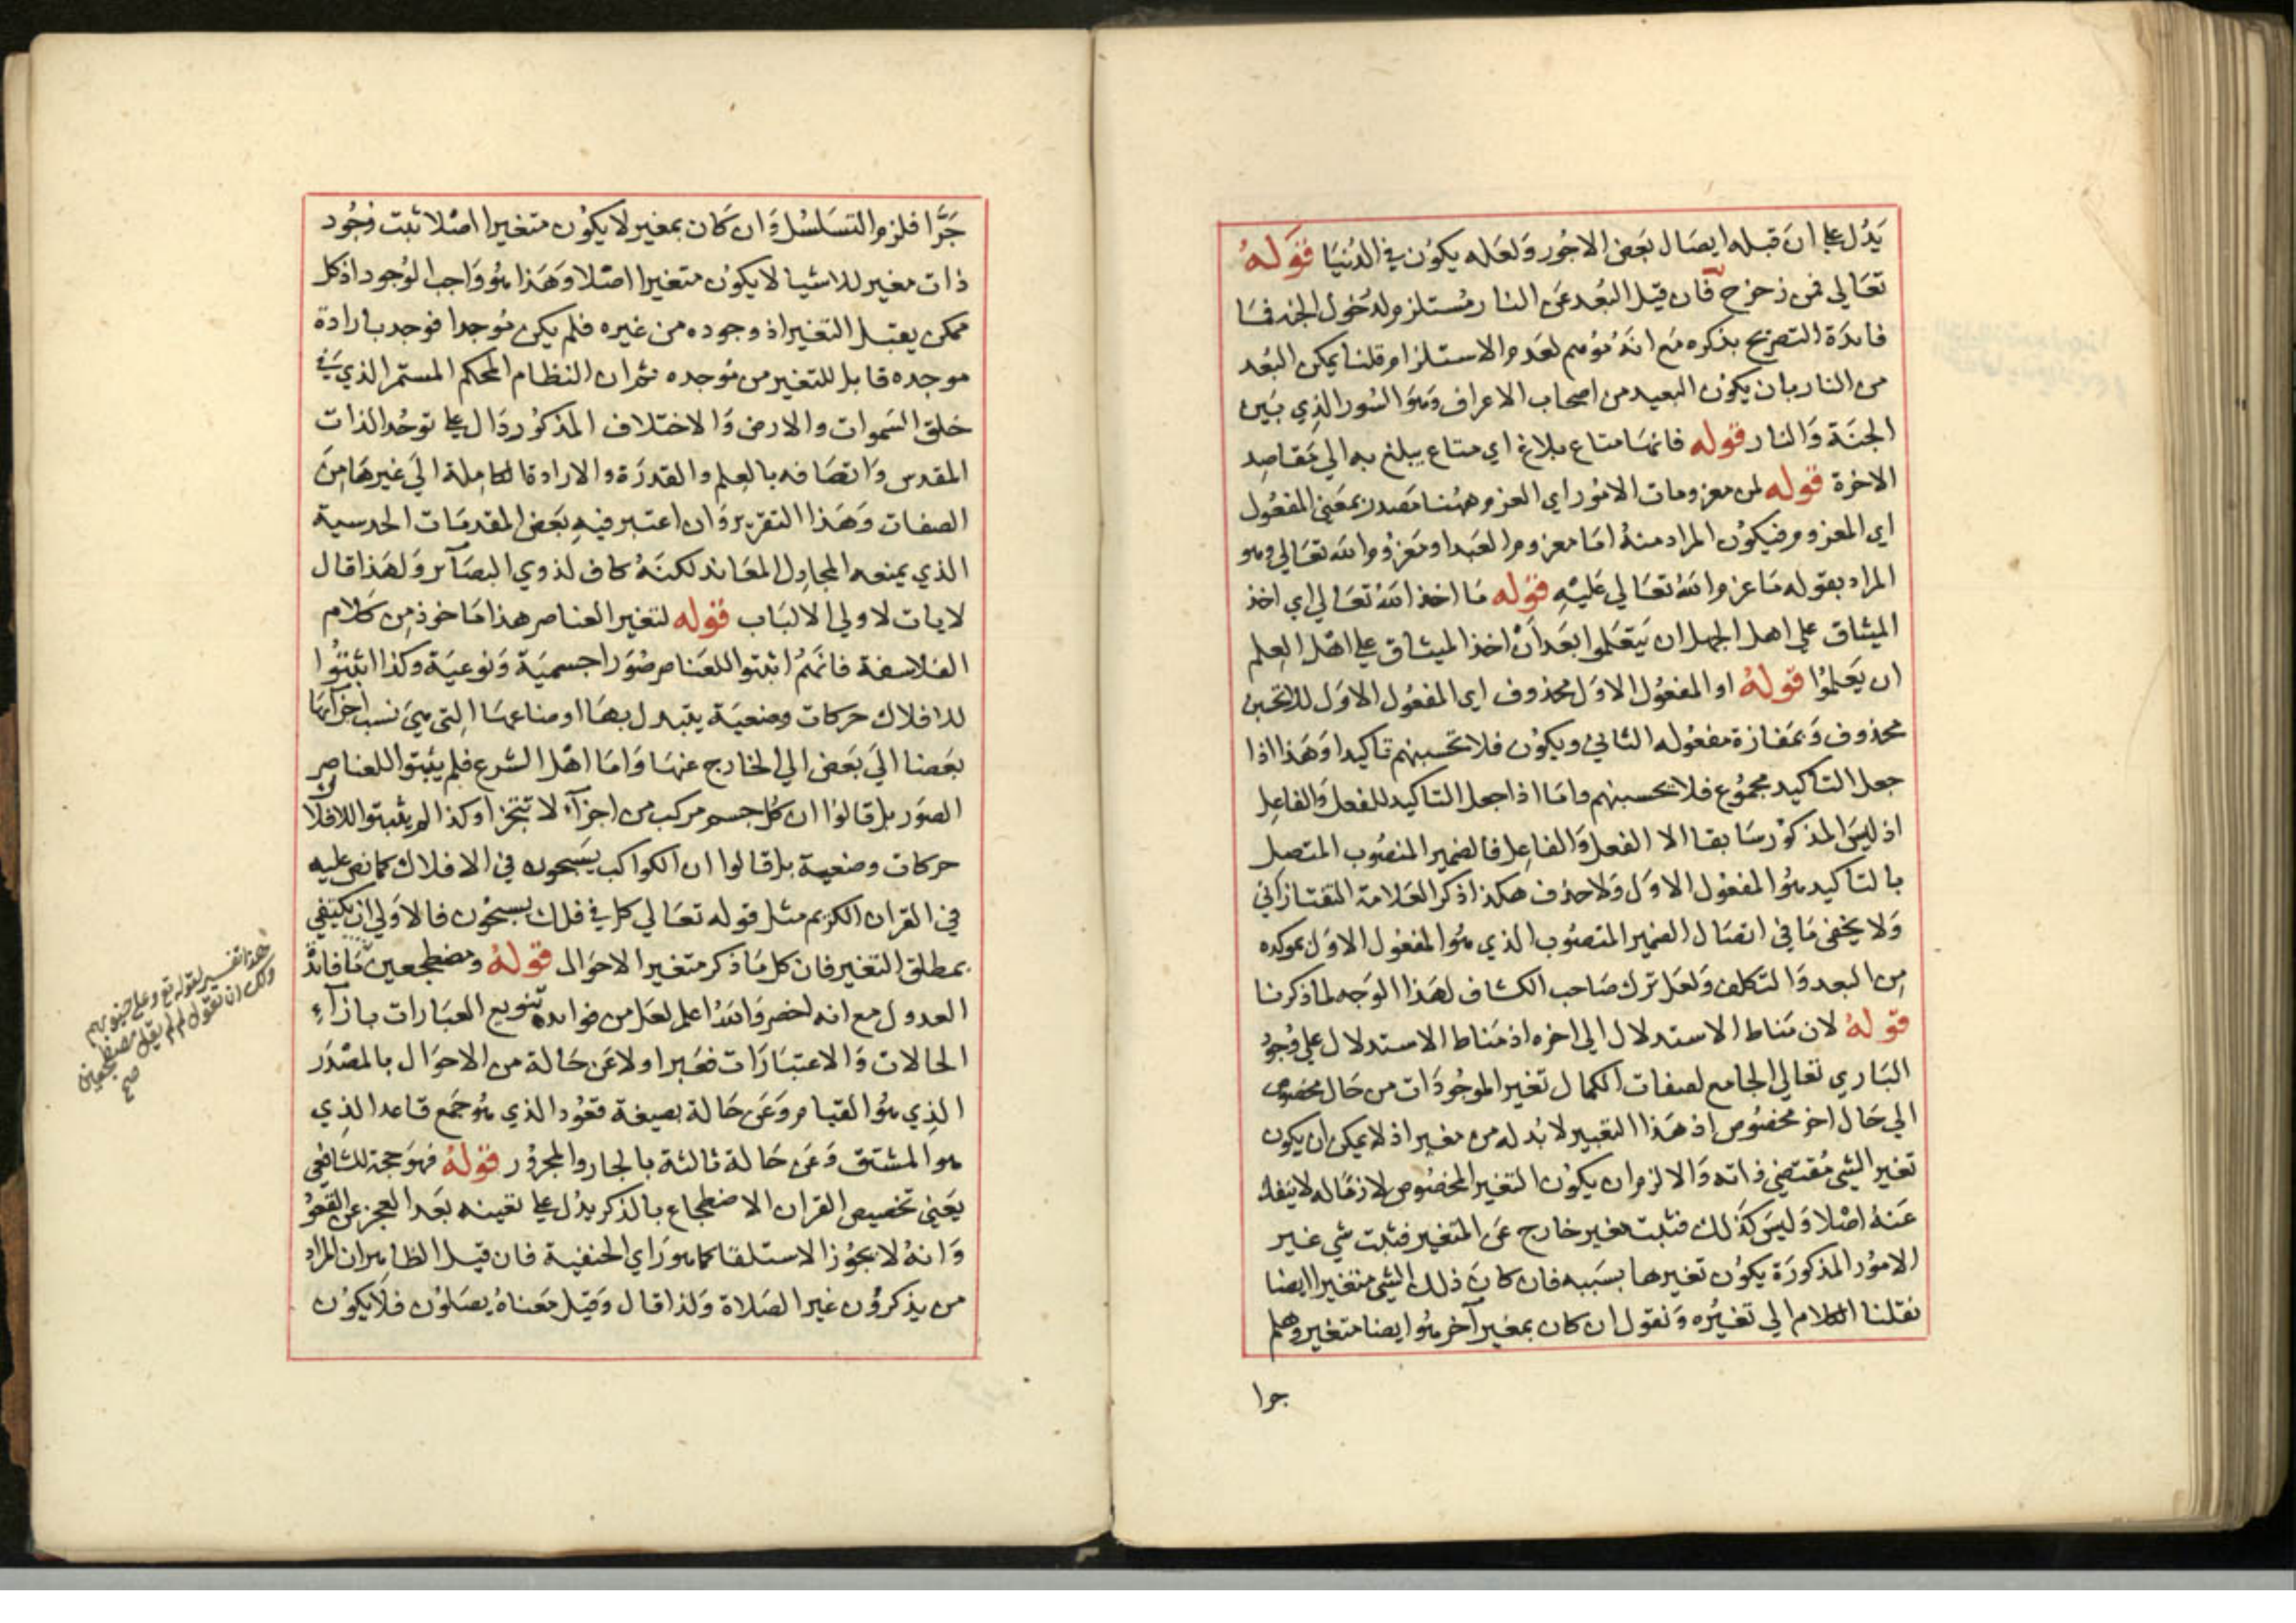 يَدُل علي ان قبله ايصَال بعَض الاجُور وَلعَله يكوُن في الدُنيَا قوَلهُ
تعَالي فمن زحزح فان قيل البُعد عَن النار مُستلزم لدُخول الجنة فمَا
فائدَة التصريح بذكره مَع انهُ مُوهم لعَدم الاستلزام قلنا يمكن البُعد
من النار بان يكوُن البعيد من اصحاب الاعراف وَهوَ السُور الذِي بَين
الجنَة وَالنار قوله فانهَا متاع بلاغ اي متاع يبلغ به الي مَقاصِد
الاخرة قوله من معزومات الامُور اي العزم ههُنا مَصدر بمعَني المفعُول
اي المعزوم فيكوُن المراد منهُ امَا معزوم العَبد او مَعزُوم الله تعَالي وهو
المراد بقوله مَا عزم اللهُ تعَالي عَليْه قوُله مَا اخذ اللهُ تعَالي اي اخذ
الميثاق علي اهل الجهل ان يَتعَلموا بعَد اَنْ اخذ الميثاق علي اهْل العِلم
ان يعَلمُوا قولهُ او المفعُول الاوَل محذوف اي المفعُول الاوَل للاتحسبن
محذوف وَبمَفازة مفعوُله الثاني ويكوُن فلا تحسبنهم تاكيدا وَهَذا اذا
جعل التاكيد مجمُوع فلا يحسبنهم وامَا اذا جعل التاكيد للفعل وَالفاعِل
اذ ليسَ المذكوُر سَابقا الا الفعل وَالفاعِل فالضمير المنصُوب المتصل
بالتاكيد هوُ المفعُول الاوَل وَلا حذف هكذا ذكر العَلامة التفتازاني
وَلا يخفي مَا في اتصَال الضمير المنصُوب الذي هوُ المفعُول الاوَل بموكده
مِن البعد وَالتكلف وَلعَل ترك صَاحب الكشاف لهَذا الوَجه لما ذكرنا
قولهُ لان مَناط الاستدلال الي اخره اذ مَناط الاستدلال علي وُجود
البَاري تعَالي الجامع لصفات الكمال تغير الموجُودَات من حَال مخصُوص
الي حَال اخر مخصُوص اذ هَذا التغيير لا بُد له من مغير اذ لا يمكن ان يكون
تغير الشي مُقتضي ذاته وَالا لزم ان يكوُن التغير المخصُوص لازمًا له لا ينفك
عَنهُ اصْلا وَليسَ كذلك فثبت مغير خارج عَن المتغير فثبت شي غير
الامُور المذكورَة يكوُن تغيرها بسَببه فان كانَ ذلك الشي متغيرا ايضا
نقلنا الكلام الي تغيُره وَنقول ان كان بمغير آخر هوُ ايضا متغير وهلم
جرا
جَرَّا فلزم التسَلسُل وَان كَان بمغير لا يكوُن متغيرا اصْلا ثبت وُجُود
ذات مغير للاشيا لا يكوُن متغيرا اصْلا وَهَذا هوُ وَاجب الوُجود اذ كل
ممكن يقبَل التغير اذ وجوده من غيره فلم يكن مُوجدا فوجد بارادة
موجده قابل للتغير من مُوجده ثم ان النظام المحكم المستمر الذي في
خلق السَموات والارض وَالاختلاف المذكوُر دَال علي توحُد الذات
المقدس وَاتصَافه بالعِلم والقدرَة والارادة الكامِلة الي غيرهَا مِن
الصفات وَهَذا التقرير وَان اعتبر فيهِ بعَض المقدمَات الحدسية
الذي يمنعه المجادِل المعَاند لكنهُ كاف لذوي البصَآئر وَلهَذا قال
لايات لاولي الالبَاب قوُله لتغير العناصر هذا مَاخوذ مِن كلَام
الفلاسفة فانهُم اثبتوا للعَناصر صُوَرا جسميَة وَنوعيَة وكذا اثبتُوا
للافلاك حركات وضعيَة يتبدل بهَا اوضاعهَا التي هيَ نسب اجزآئهَا
بعَضا الي بعَض الي الخارج عنهَا وَامَا اهْل الشرع فلم يثبتوا للعناصر
الصوَر بل قالوُا ان كل جسم مركب من اجزآء لا تتجزا وكذا لم يثبتوا للافلاك
حركات وضعية بل قالوا ان الكواكب يَسبحوُن في الافلاك كما نص عليه
في القران الكريم مثل قوله تعَالي كل في فلك يسبحوُن فالاوَلي ان يكتفي
بمطلق التغير فان كل مَا ذكر متغير الاحوَال قولهُ ومضطجعين مَا فائدة
العدول مع انه اخضر وَاللهُ اعلم لعَل من فوائده تنويع العبَارات بازآء
الحالات وَالاعتبَارَات فعَبر اولا عَن حَالة من الاحوَال بالمصْدَر
الذِي هوُ القيام وَعَن حَالة بصيغة قعُود الذي هوُ جمَع قاعد الذِي
هو المشتق وَعَن حَالة ثالثة بالجار والمجروُر قوُلهُ فهوَ حجة للشافعي
يعَني تخصيص القران الاضطجاع بالذكر يدُل علي تعَينه بعَد العجز عن القعُود
وَانهُ لا يجوُز الاستلقا كما هوَ رَاي الحنفية فان قيل الظاهر ان المراد
من يذكروُن غير الصَلاة وَلذا قال وَقيل مَعناهُ يصَلوُن فلَا يكوُن
هذا تفسير لقوله تع وعلي جنوبهم
ولك ان تقول لم لم يقل مضطجعين
صح